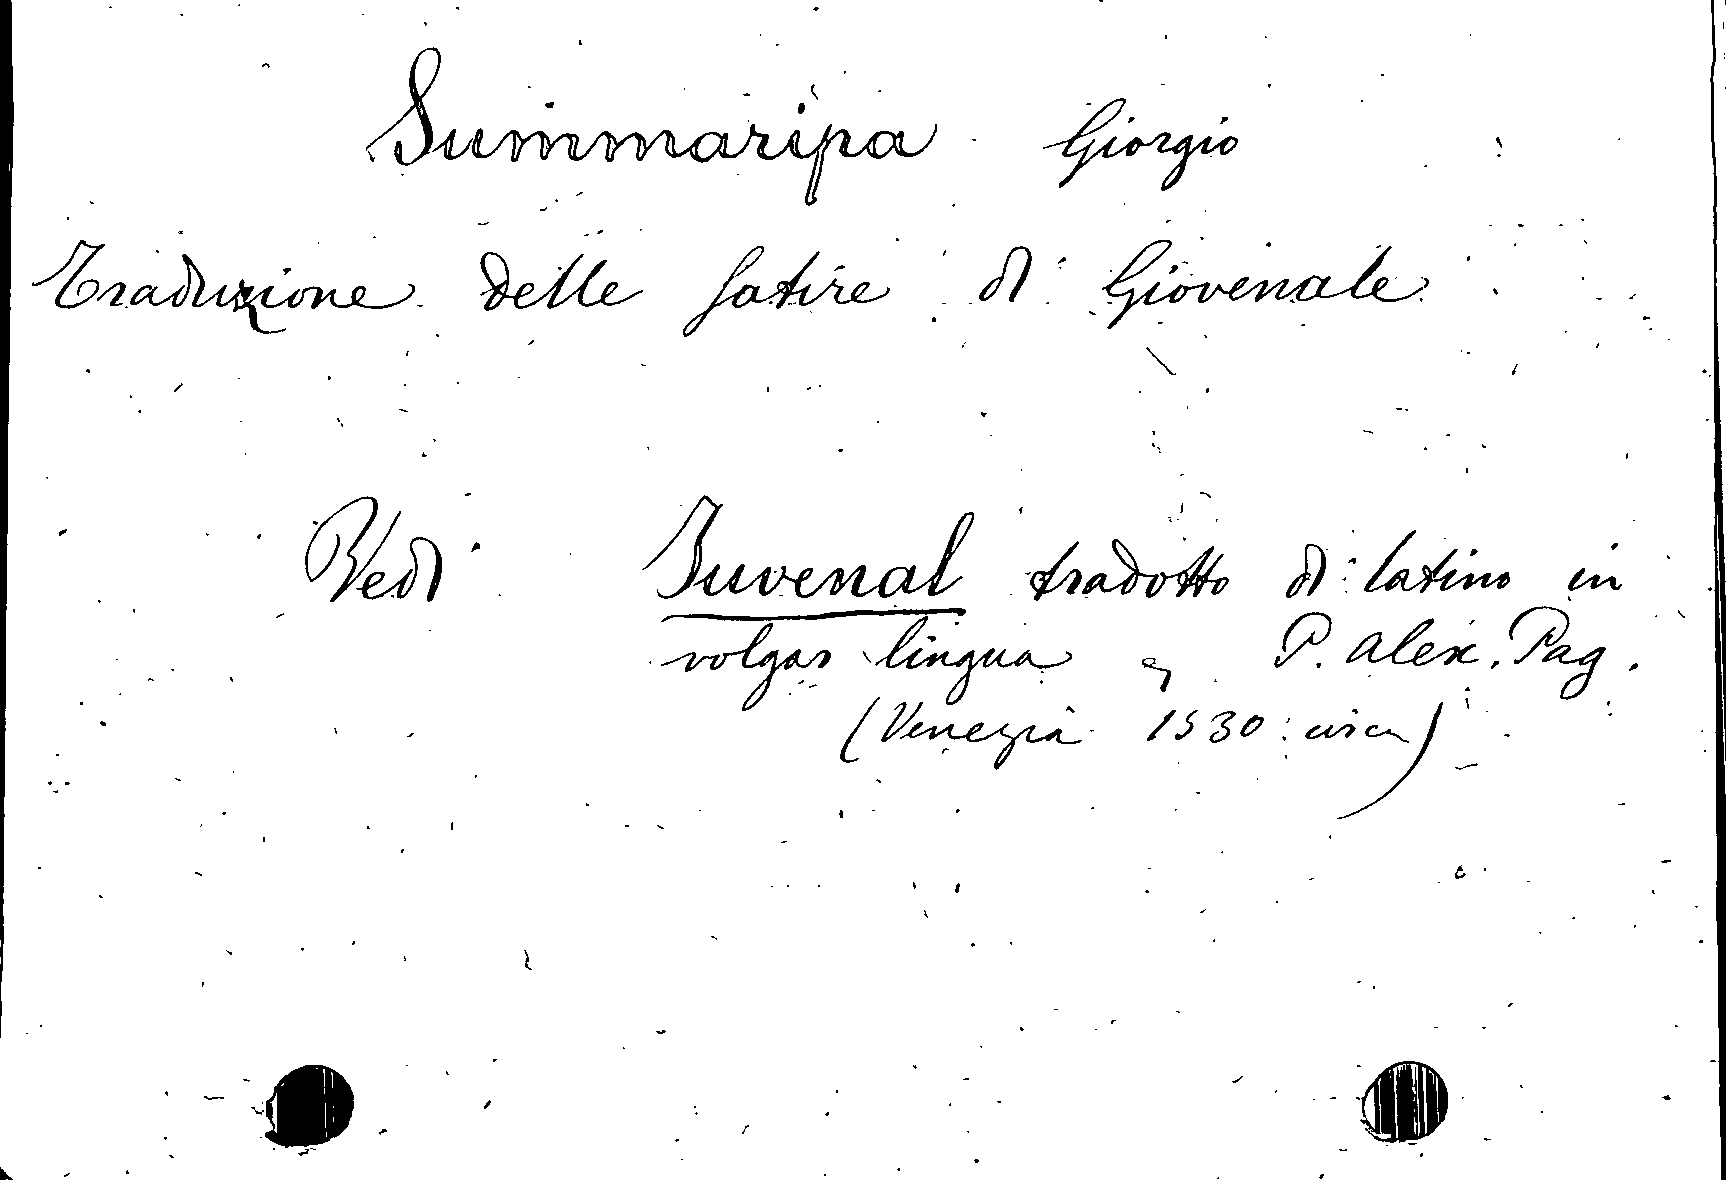 Summaripa Giorgio
Traduzione delle Satire di Giovenale
Vedi Juvenal tradotto di latino in
volgar lingua, P. Alex. Pag.
(Venezia 1530 circa)